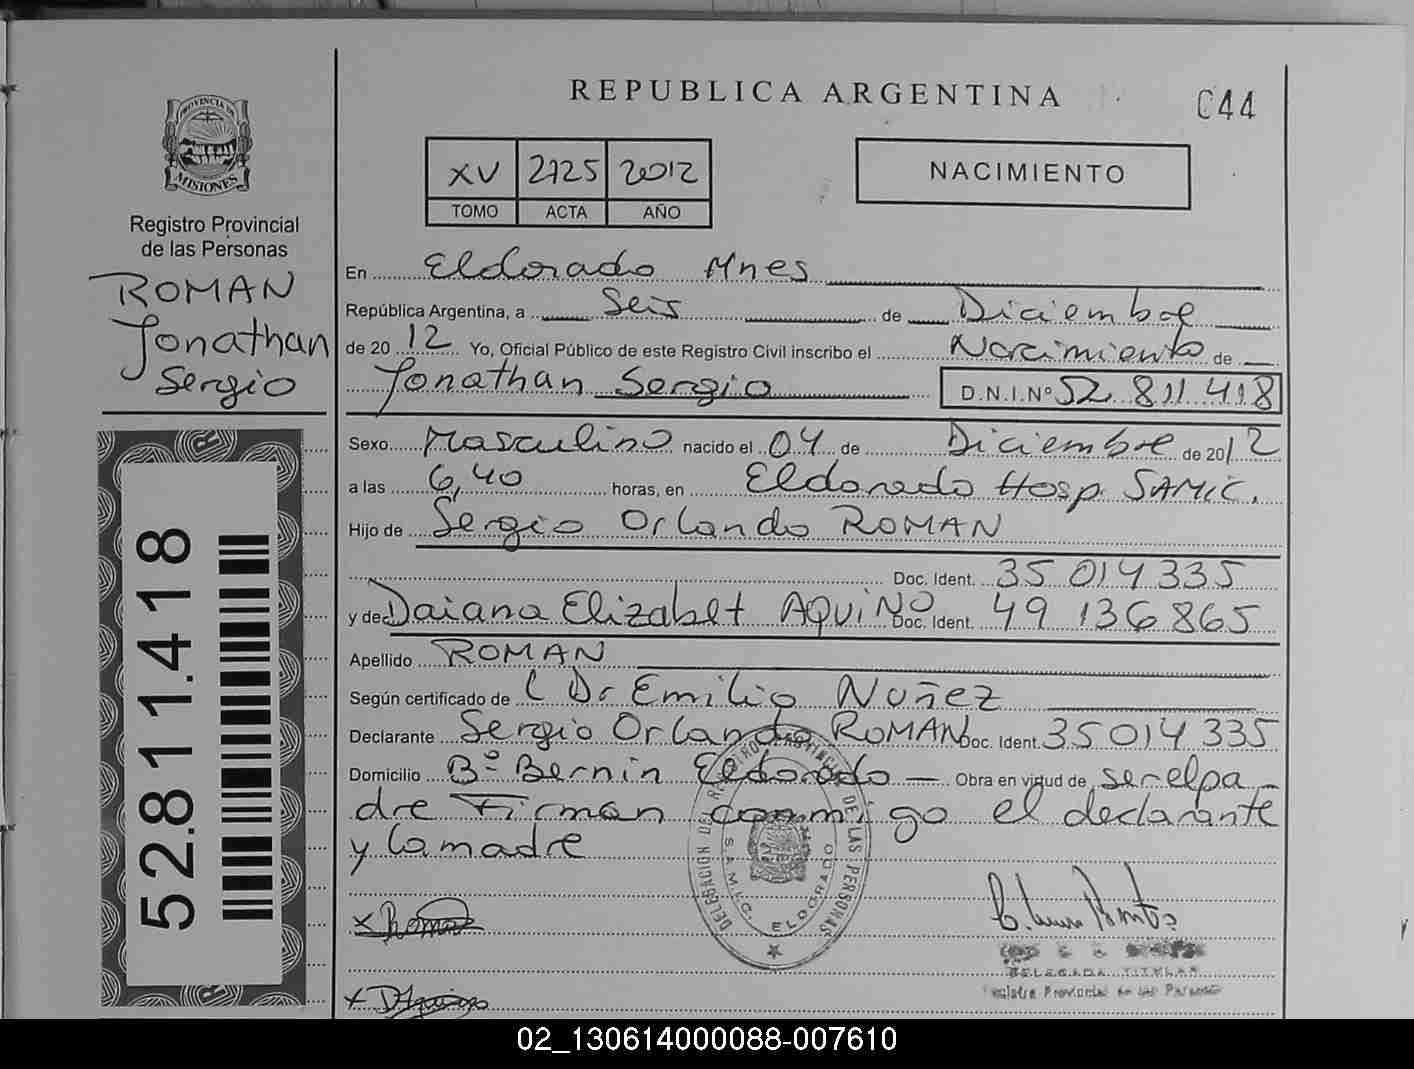 REPUBLICA ARGENTINA
044
PROVINCIA DE
MISIONES
Registro Provincial
de las Personas
ROMAN
Jonathan
Sergio
52.811.418
XV 2725 2012
TOMO ACTA AÑO
NACIMIENTO
En Eldorado Mnes
República Argentina, a Seis de Diciembre
de 20 12 Yo, Oficial Público de este Registro Civil inscribo el Nacimiento de
Jonathan Sergio D.N.I.Nº 52 811 418
Sexo Masculino nacido el 04 de Diciembre de 20 12
a las 6,40 horas, en Eldorado Hosp. SAMIC.
Hijo de Sergio Orlando ROMAN
Doc. Ident. 35 014 335
y de Daiana Elizabet AQUINO Doc. Ident. 49 136 865
Apellido ROMAN
Según certificado de Dr Emilio Nuñez
Declarante Sergio Orlando ROMAN Doc. Ident. 35 014 335
Domicilio Bº Bernin Eldorado — Obra en virtud de ser el pa-
dre Firman conmigo el declarante
y la madre
DELEGACIÓN DEL REGISTRO PROVINCIAL DE LAS PERSONAS
S.A.M.I.C. ELDORADO
x Roman
x DAquino
DELEGADA TITULAR
Registro Provincial de las Personas
02_130614000088-007610